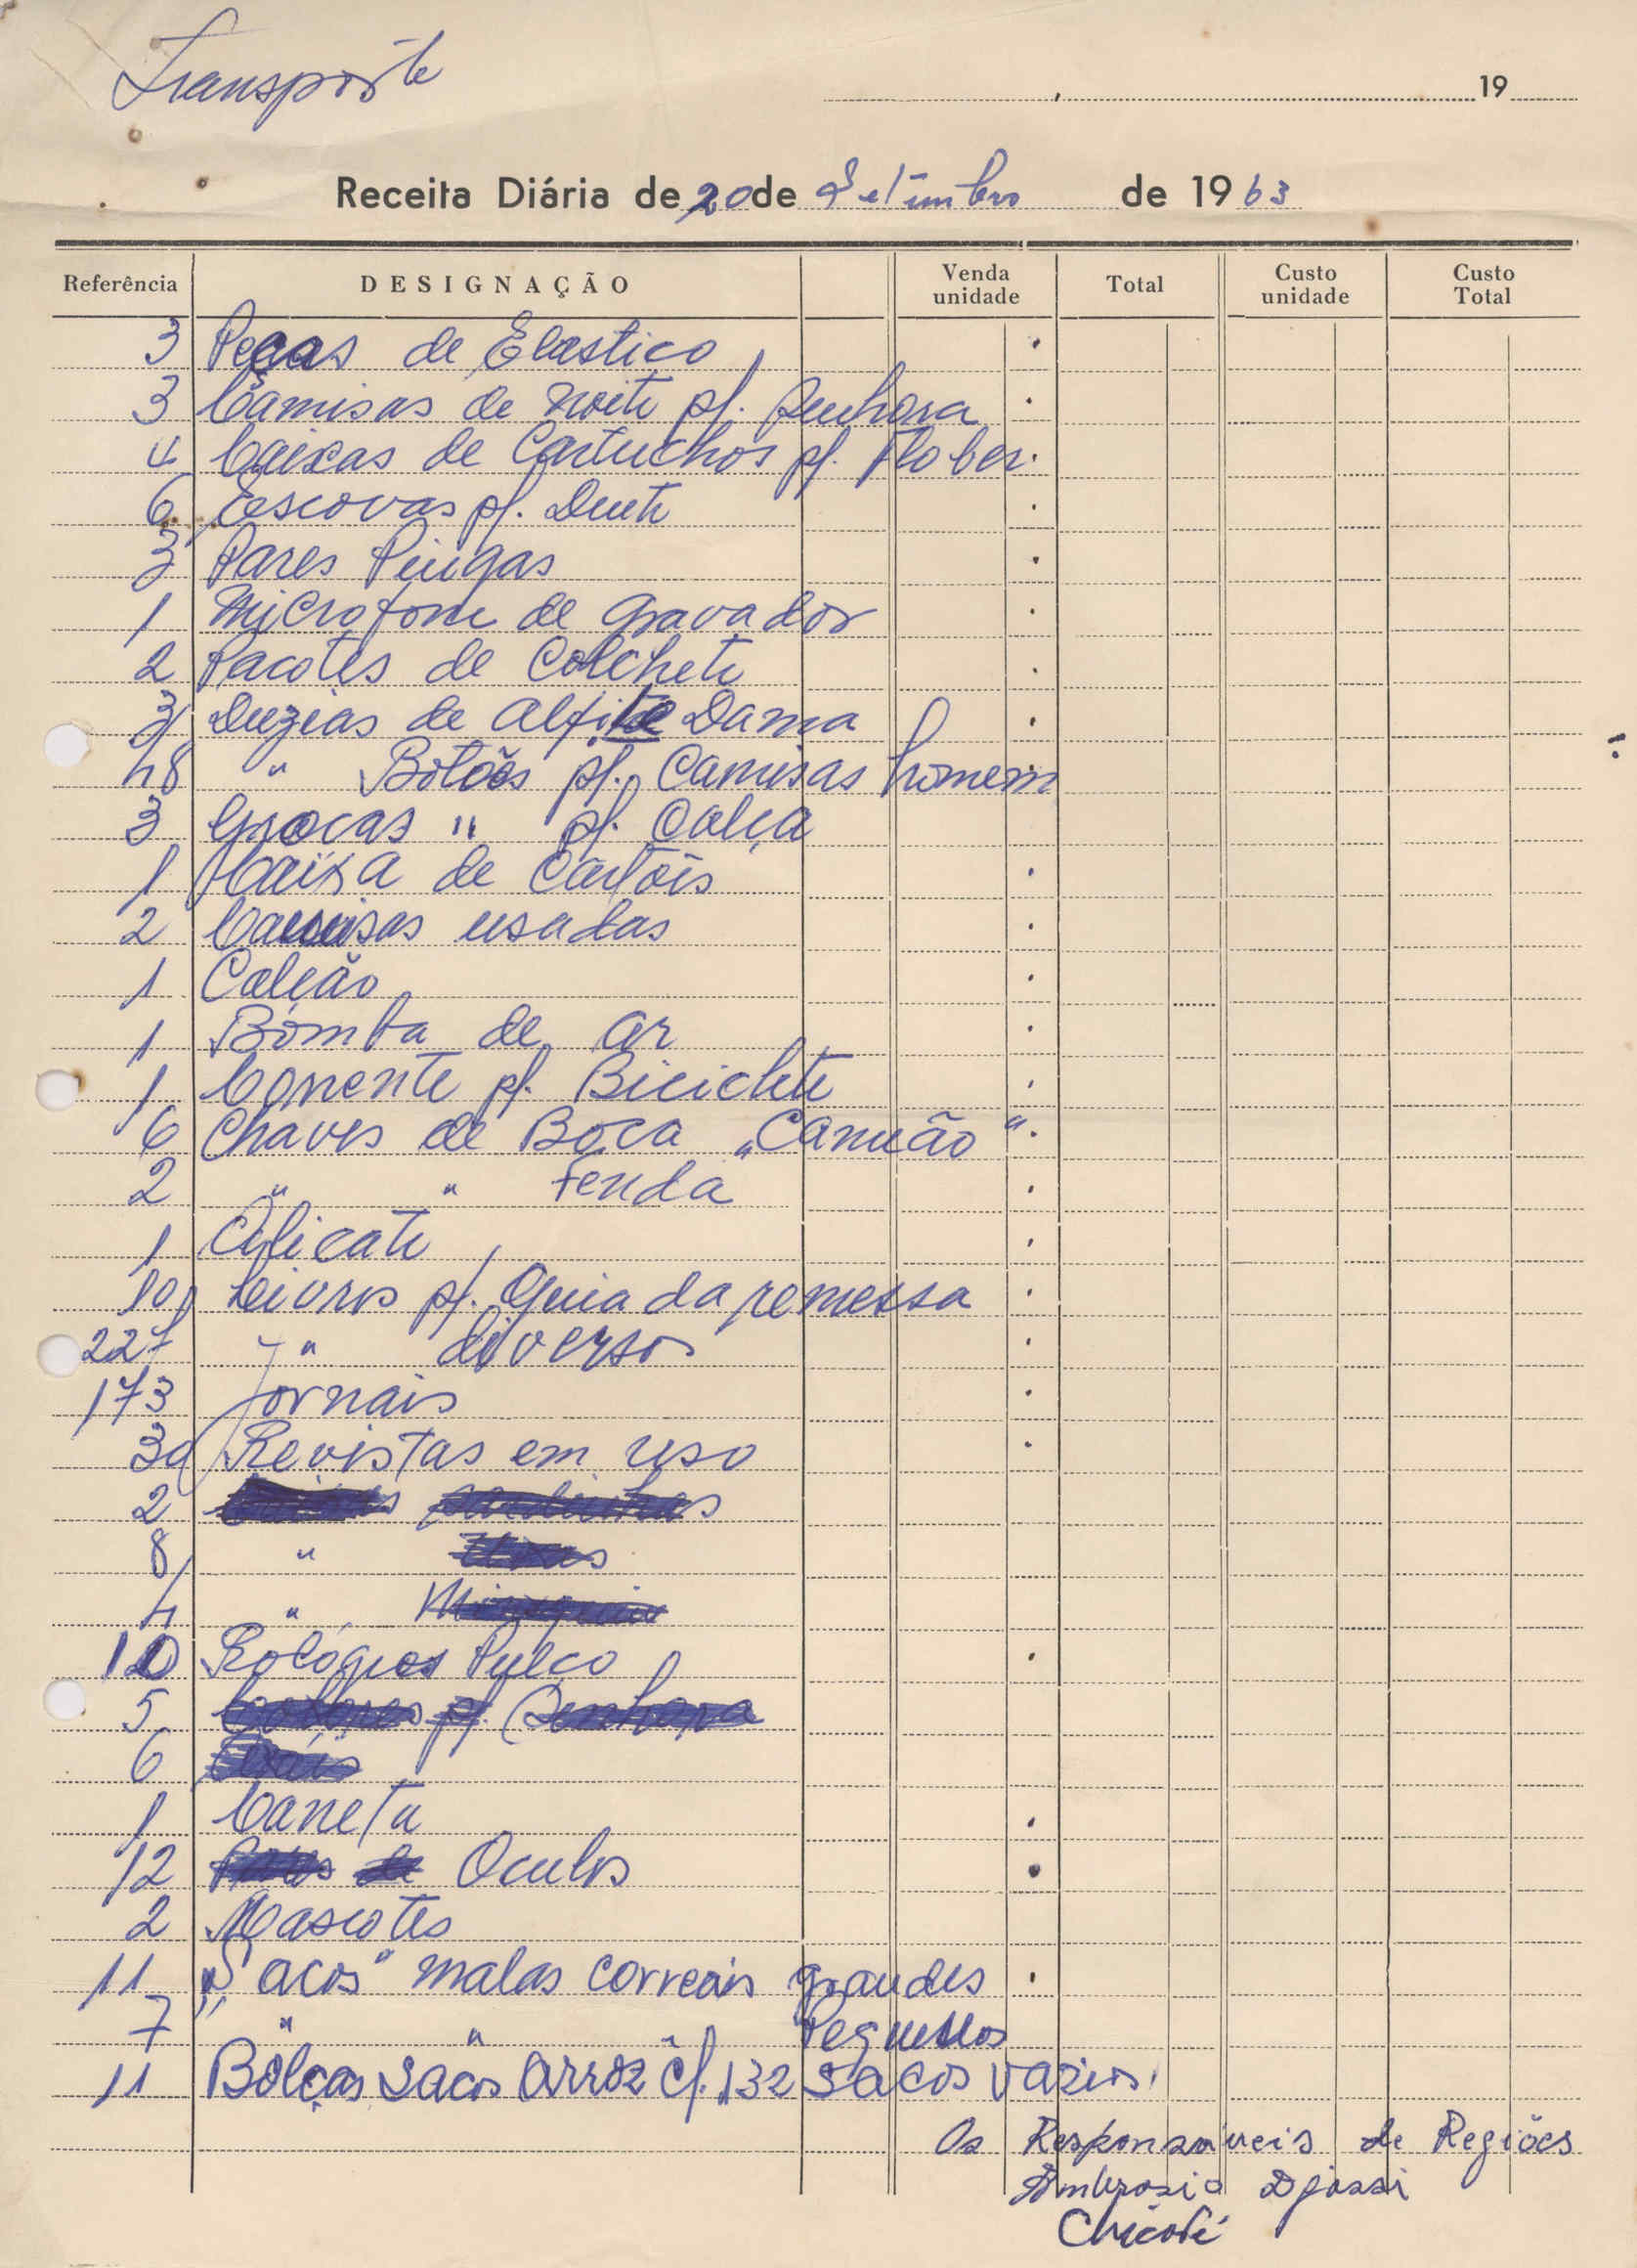 Transporte
, 19
Receita Diária de 20 de Setembro de 1963
Referência DESIGNAÇÃO Venda unidade Total Custo unidade Custo Total
3 Peças de Elastico
3 Camisas de noite p/. Senhora
4 Caixas de Cartuchos p/. Flober
6 Escovas p/. Dente
3 Pares Piugas
1 Microfone de gravador
2 Pacotes de Colchete
3 Duzias de Alfite Dama
48 " Botões p/. Camisas homem
3 Grocas " p/. Calça
1 Caixa de Cartões
2 Camisas usadas
1 Calção
1 Bomba de ar
1 Corrente p/. Biciclete
6 Chaves de Boca "Camião"
2 " " Fenda
1 Alicate
10 Livros p/. Guia da remessa
227 " diversos
173 Jornais
30 Revistas em uso
2
8 "
4 "
10 Rológios Pulço
5 p/ Senhora
6
1 Caneta
12 Oculos
2 Mascotes
11 "Sacos" malas correais grandes
7 " " Pequenos
11 Bolças Sacos Arroz c/. 132 Sacos varios
Os Responsáveis de Regiões
Ambrosio Djassi
Chicoté